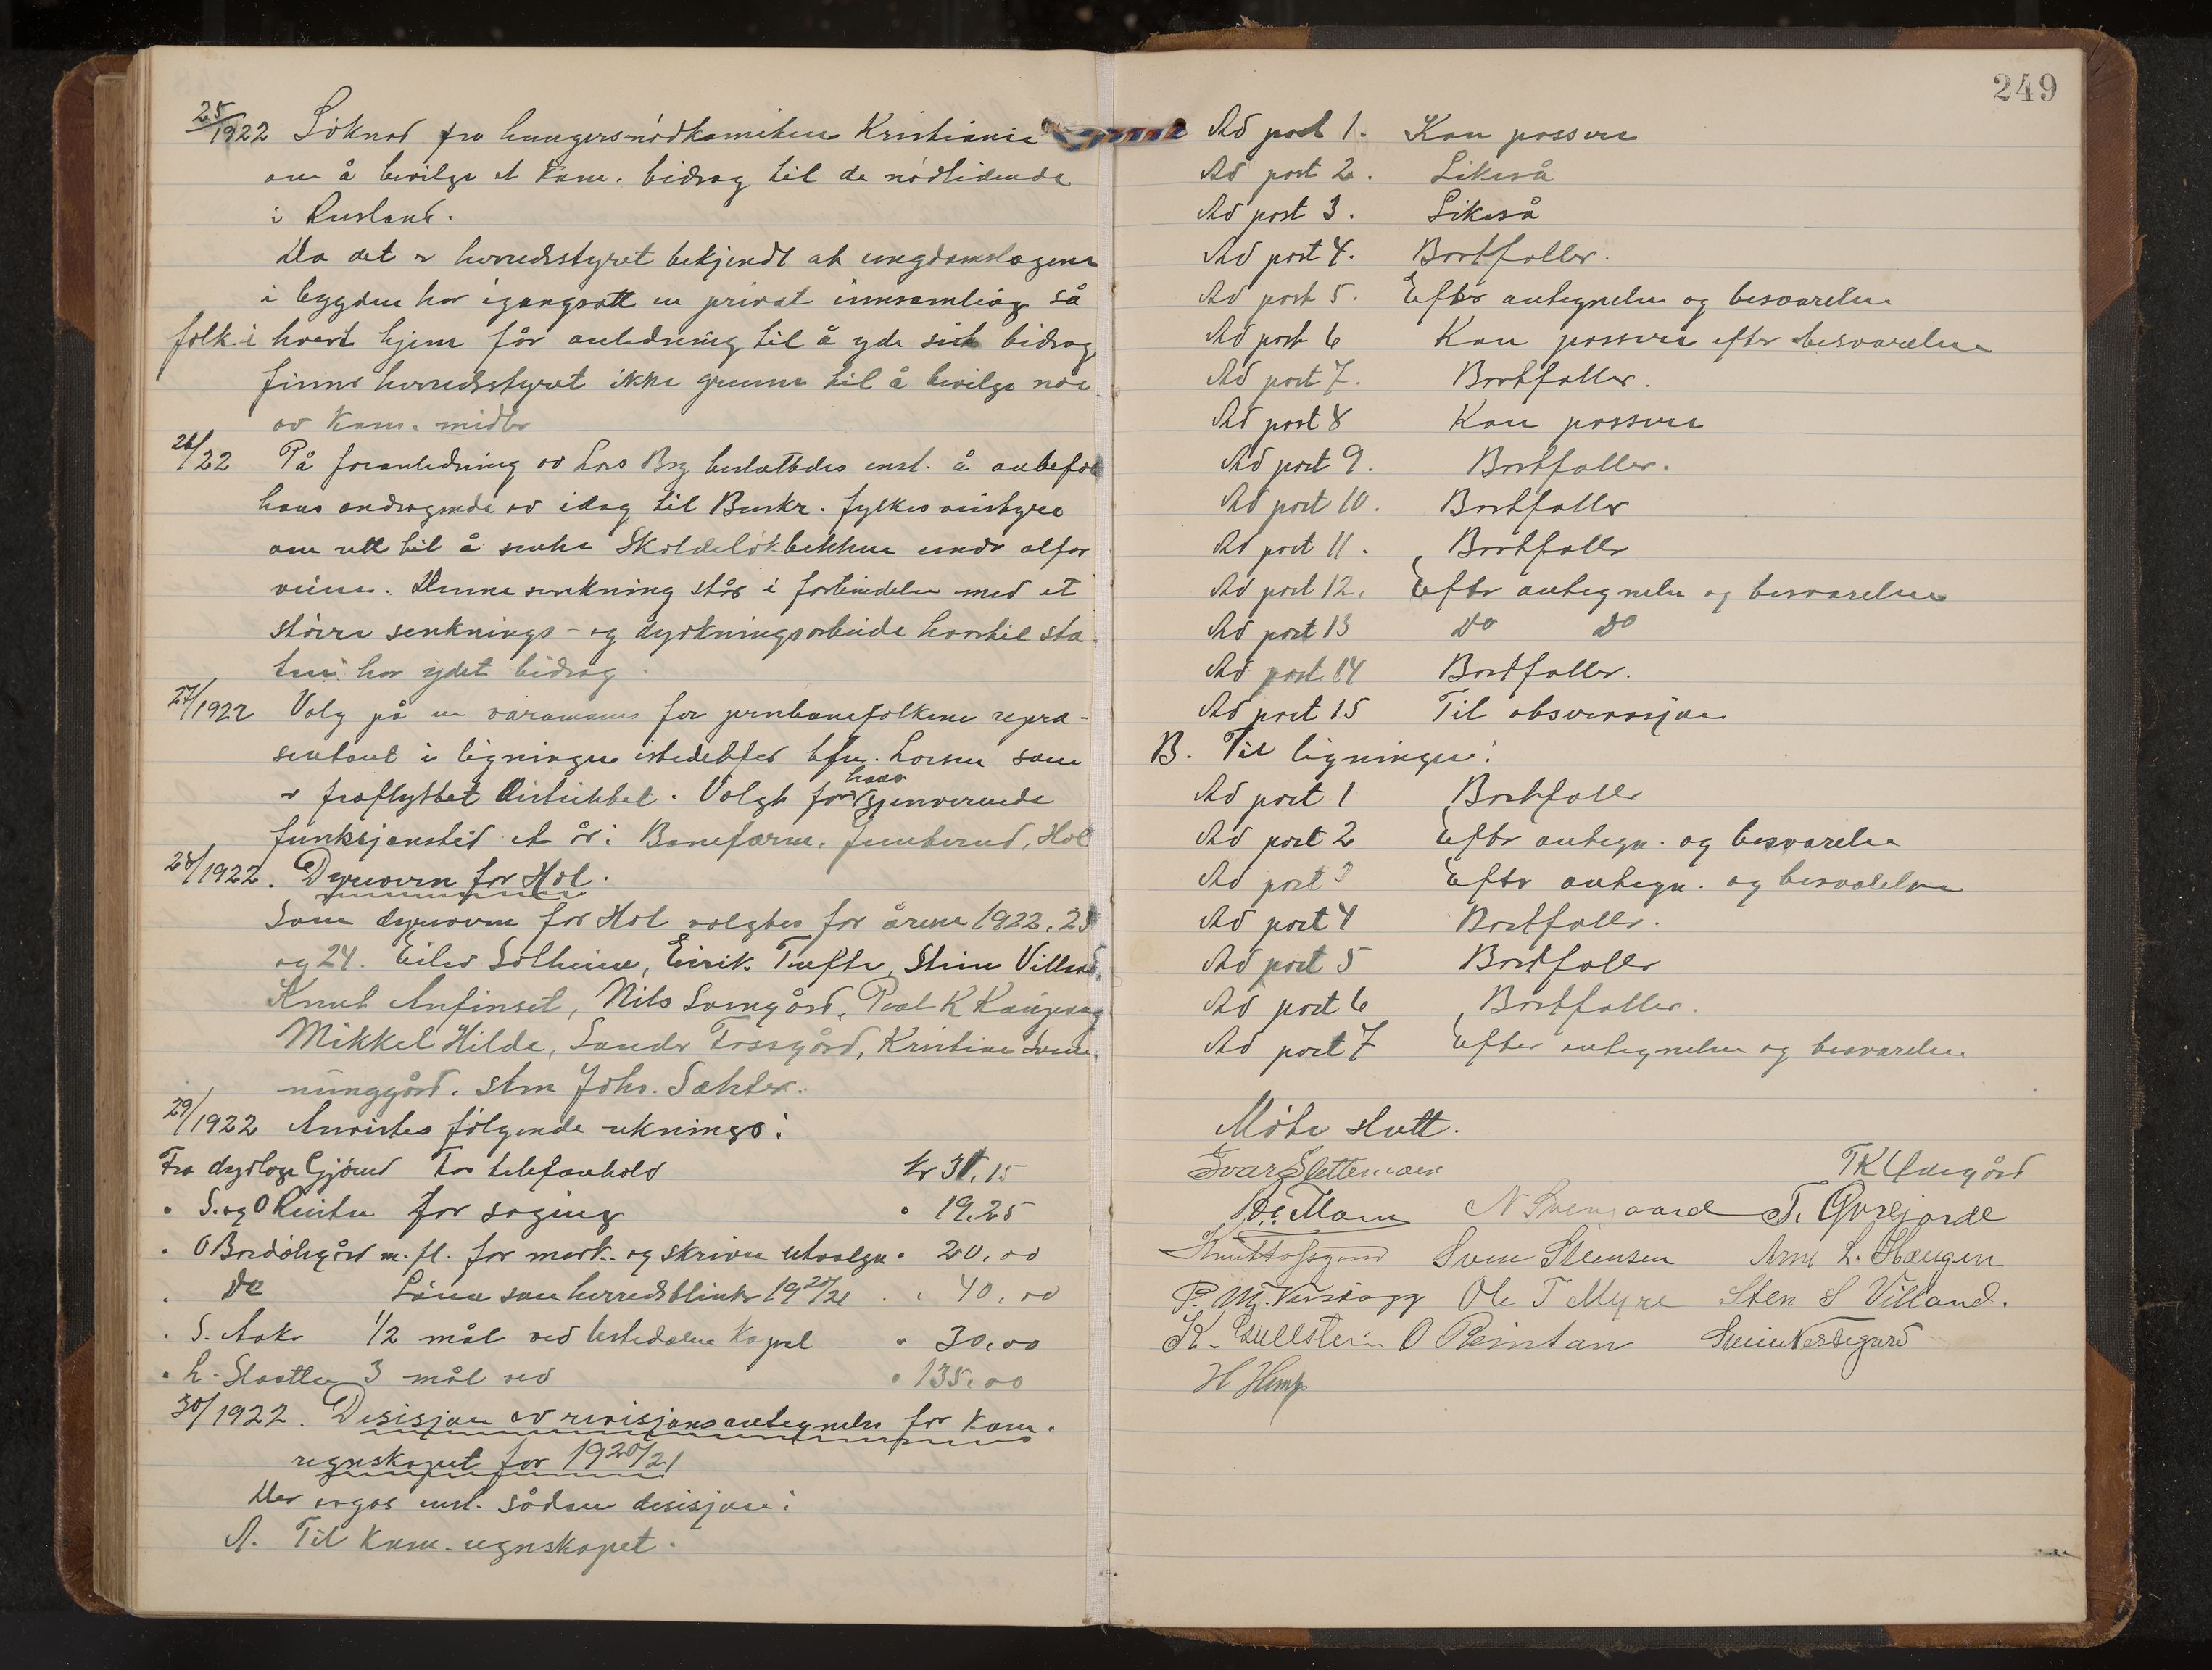 25/1922 Söknad fra hungersnödkomiteen Kristiania
om å bevilge et kom. bidrag til de nödlidende
i Rusland.
Da det er herredsstyret bekjendt at ungdomslagene
i bygden har igangsatt en privat innsamling så
folk i hvert hjem får anledning til å yde sit bidrag
finner herredsstyret ikke grunn til å bevilge noe
av kom. midler
26/22 På foranledning av Lars Brg besluttedes enst. å anbefale
hans andragende av idag til Buskr. fylkes veistyre
om rett til å senke Skoldelökbekken under alfar
veien. Denne senkning står i forbindelse med et
större senknings- og dyrkningsarbeide hvortil sta-
ten har ydet bidrag.
27/1922 Valg på en varamann for jernbanefolkene repre-
sentant i ligningen istedetfor bfm. Larsen som
er fraflyttet distriktet. Valgt for hans gjenværende
funksjonstid et år: Baneform. Jenberud, Hol
28/1922. Dyrevern for Hol.
Som dyrevern for Hol valgtes for årene 1922, 23
og 24. Eilev Solheim, Eirik Tufte, Stein Villand,
Knut Anfinset, Nils Svengård, Paal K Kaupang
Mikkel Hilde, Sander Tossgård, Kristian Svein-
ninggård. stm Johs. Sæhter.
29/1922 Anvistes fölgende rekninger:
Fra dyrlæge Gjönd for telefonhold kr 31.15
" S. og O Reinton for saging " 19.25
" O Bordölsgård m. fl. for merk. og skriven utvalgn " 20.00
" Do Lönn som herredsblinker 1920/21 " 40.00
" S. Aaker 1/2 mål ved Ustedalen Kapel " 30.00
" L. Slaatten 3 mål ved " 135.00
30/1922. Desisjon av revisjonsantegnelser for kom.
regnskapet for 1920/21
Der avgas enst. sådan desisjon:
A. Til kom. regnskapet.
249
Ad post 1. Kan passere
Ad post 2. Likeså
Ad post 3. Likeså
Ad post 4. Bortfaller.
Ad post 5. Efter antegnelsen og besvarelsen
Ad post 6 Kan passere efter besvarelsen
Ad post 7. Bortfaller.
Ad post 8 Kan passere
Ad post 9. Bortfaller.
Ad post 10. Bortfaller
Ad post 11. Bortfaller
Ad post 12. Efter antegnelsen og besvarelsen
Ad post 13 Do Do
Ad post 14 Bortfaller.
Ad post 15 Til observasjon
B. Til ligningen:
Ad post 1 Bortfaller
Ad post 2 Efter antegn. og besvarelsen
Ad post 3 Efter antegn. og besvarelsen
Ad post 4 Bortfaller.
Ad post 5 Bortfaller
Ad post 6 Bortfaller.
Ad post 7 Efter antegnelsen og besvarelsen
Möte slutt.
Ivar Slettemoen
N Svengaard T. Øvrejorde
Knut Tofsgaard Sven Steinsen Arne L. Haugen
Ole T Myre Sten S Villand.
K. Gullstein O Reintan Svein Nestegard
H Hemp